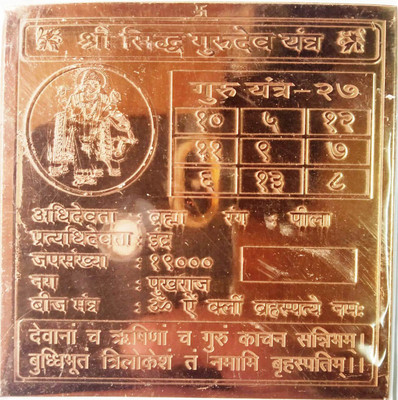 श्री सिद्ध गुरुदेव यंत्र
गुरु यंत्र - २७
१० ५ १२
११ ९ ७
३ १३ ८
अधिदेवता : ब्रह्मा रंग पीला
प्रत्यधिदेवता : इंद्र
जपसंख्या : १९०००
नग : पुखराज
बीज मंत्र : ॐ ऐं क्लीं ब्रहस्पत्ये नमः
देवानां च ऋषिणां च गुरुं कांचन सन्निभम्।
बुध्धिभूतं त्रिलोकेशं तं नमामि बृहस्पतिम्।।